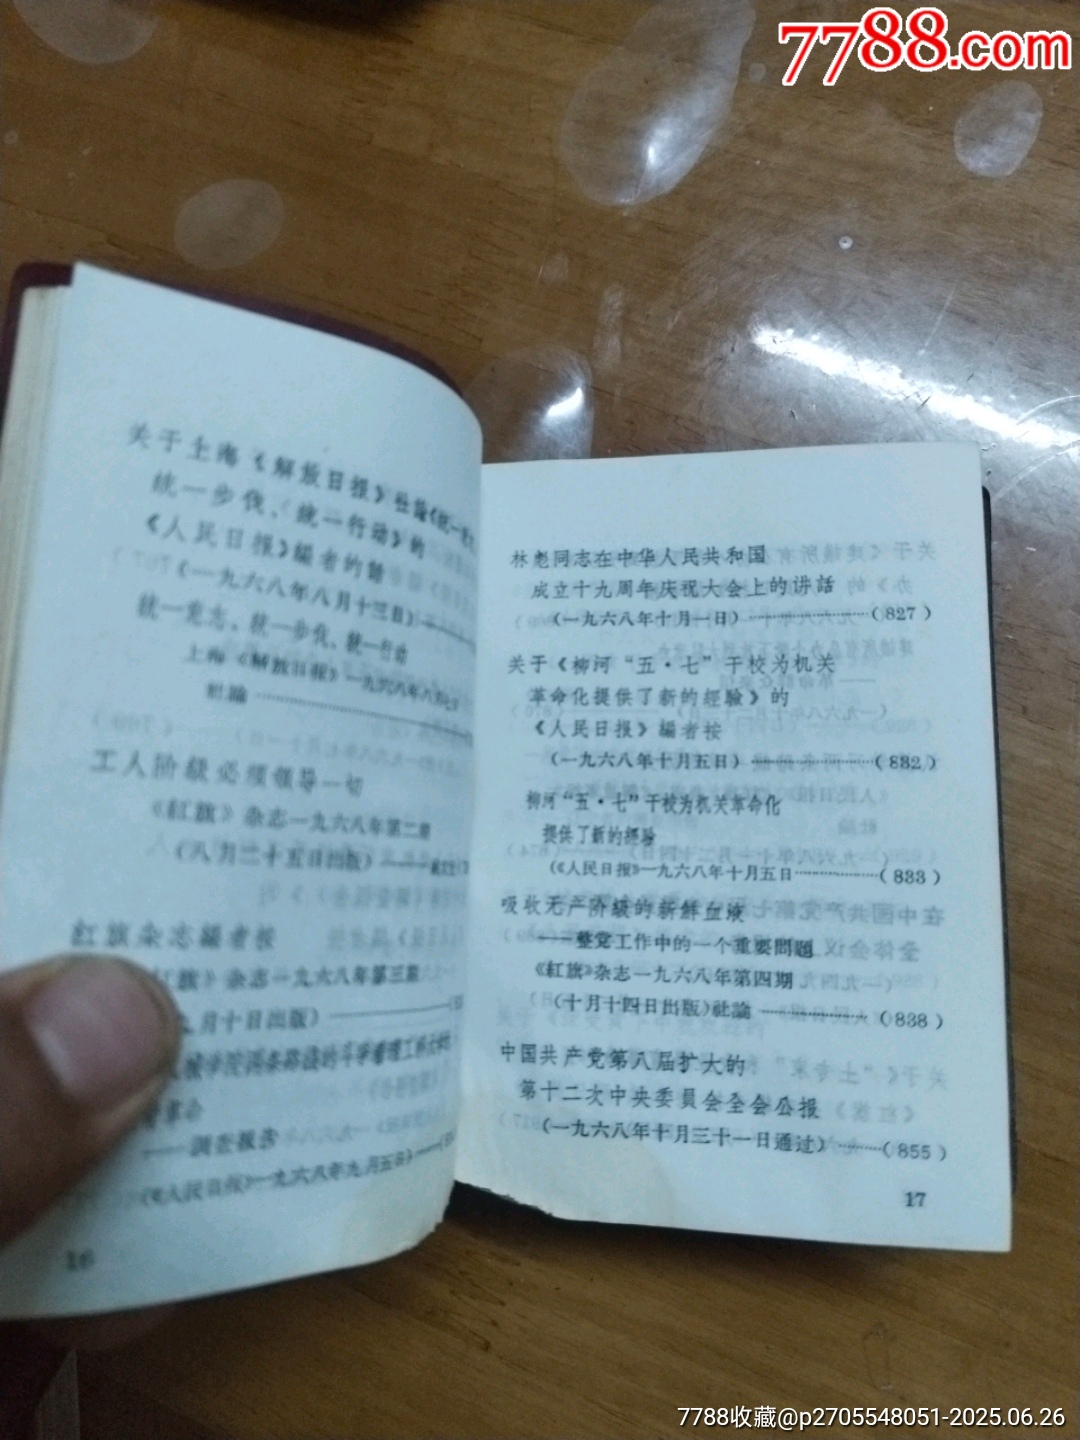 7788.com
关于上海《解放日报》社論《統一意志、
統一步伐、統一行动》的
《人民日报》編者的話
(一九六八年八月十三日)
統一意志、統一步伐、統一行动
上海《解放日报》一九六八年八月
社論
工人阶級必須領导一切
《紅旗》杂志一九六八年第二期
(八月二十五日出版)
紅旗杂志編者按
紅旗》杂志一九六八年第三期
月十日出版)
械学院两条路綫的斗争看理工科大学的
革命
——調查报告
(《人民日报》一九六八年九月五日)
16
林彪同志在中华人民共和国
成立十九周年庆祝大会上的讲話
(一九六八年十月一日)……………(827)
关于《柳河“五·七”干校为机关
革命化提供了新的經驗》的
《人民日报》編者按
(一九六八年十月五日)……………(832)
柳河“五·七”干校为机关革命化
提供了新的經驗
(《人民日报》一九六八年十月五日……………(833)
吸收无产阶級的新鮮血液
——整党工作中的一个重要問題
《紅旗》杂志一九六八年第四期
(十月十四日出版)社論……………(838)
中国共产党第八届扩大的
第十二次中央委員会全会公报
(一九六八年十月三十一日通过)………(855)
17
7788收藏@p2705548051-2025.06.26